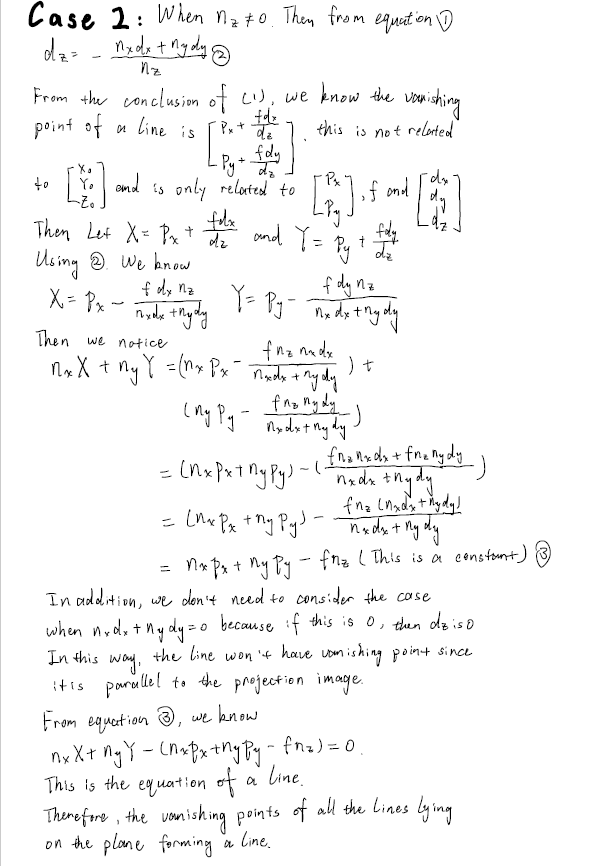 Case 2: When n_z ≠ 0. Then from equation ①
d_z = - (n_x d_x + n_y d_y) / n_z ②
From the conclusion of (1), we know the vanishing
point of a line is [P_x + f d_x / d_z ; P_y + f d_y / d_z], this is not related
to [X_0 ; Y_0 ; Z_0] and is only related to [P_x ; P_y], f and [d_x ; d_y ; d_z].
Then Let X = P_x + f d_x / d_z and Y = P_y + f d_y / d_z
Using ②. We know
X = P_x - f d_x n_z / (n_x d_x + n_y d_y) Y = P_y - f d_y n_z / (n_x d_x + n_y d_y)
Then we notice
n_x X + n_y Y = (n_x P_x - f n_z n_x d_x / (n_x d_x + n_y d_y)) +
(n_y P_y - f n_z n_y d_y / (n_x d_x + n_y d_y))
= (n_x P_x + n_y P_y) - ((f n_z n_x d_x + f n_z n_y d_y) / (n_x d_x + n_y d_y))
= (n_x P_x + n_y P_y) - f n_z (n_x d_x + n_y d_y) / (n_x d_x + n_y d_y)
= n_x P_x + n_y P_y - f n_z (This is a constant) ③
In addition, we don't need to consider the case
when n_x d_x + n_y d_y = 0 because if this is 0, then d_z is 0
In this way, the line won't have vanishing point since
it is parallel to the projection image.
From equation ③, we know
n_x X + n_y Y - (n_x P_x + n_y P_y - f n_z) = 0.
This is the equation of a line.
Therefore, the vanishing points of all the lines lying
on the plane forming a line.